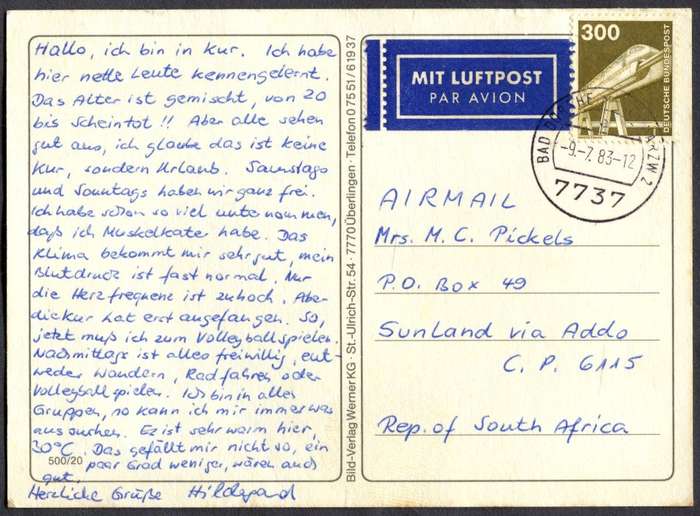 Hallo, ich bin in Kur. Ich habe
hier nette Leute kennengelernt.
Das Alter ist gemischt, von 20
bis Scheintot!! Aber alle sehen
gut aus, ich glaube das ist keine
Kur, sondern Urlaub. Samstags
und Sonntags haben wir ganz frei.
Ich habe schon so viel unternommen,
daß ich Muskelkater habe. Das
Klima bekommt mir sehr gut, mein
Blutdruck ist fast normal. Nur
die Herzfrequenz ist zu hoch. Aber
die Kur hat erst angefangen. So,
jetzt muß ich zum Volleyball spielen.
Nachmittags ist alles freiwillig, ent-
weder Wandern, Radfahren oder
Volleyball spielen. Ich bin in allen
Gruppen, so kann ich mir immer was
aussuchen. Es ist sehr warm hier,
30°C. Das gefällt mir nicht so, ein
paar Grad weniger, wären auch
gut.
Herzliche Grüße Hildegard
500/20
Bild-Verlag Werner KG · St.-Ulrich-Str. 54 · 7770 Überlingen · Telefon 0 75 51 / 6 19 37
MIT LUFTPOST
PAR AVION
300
DEUTSCHE BUNDESPOST
BAD
-9.-7.83-12
7737
AIRMAIL
Mrs. M. C. Pickels
P.O. Box 49
Sunland via Addo
C. P. 6115
Rep. of South Africa